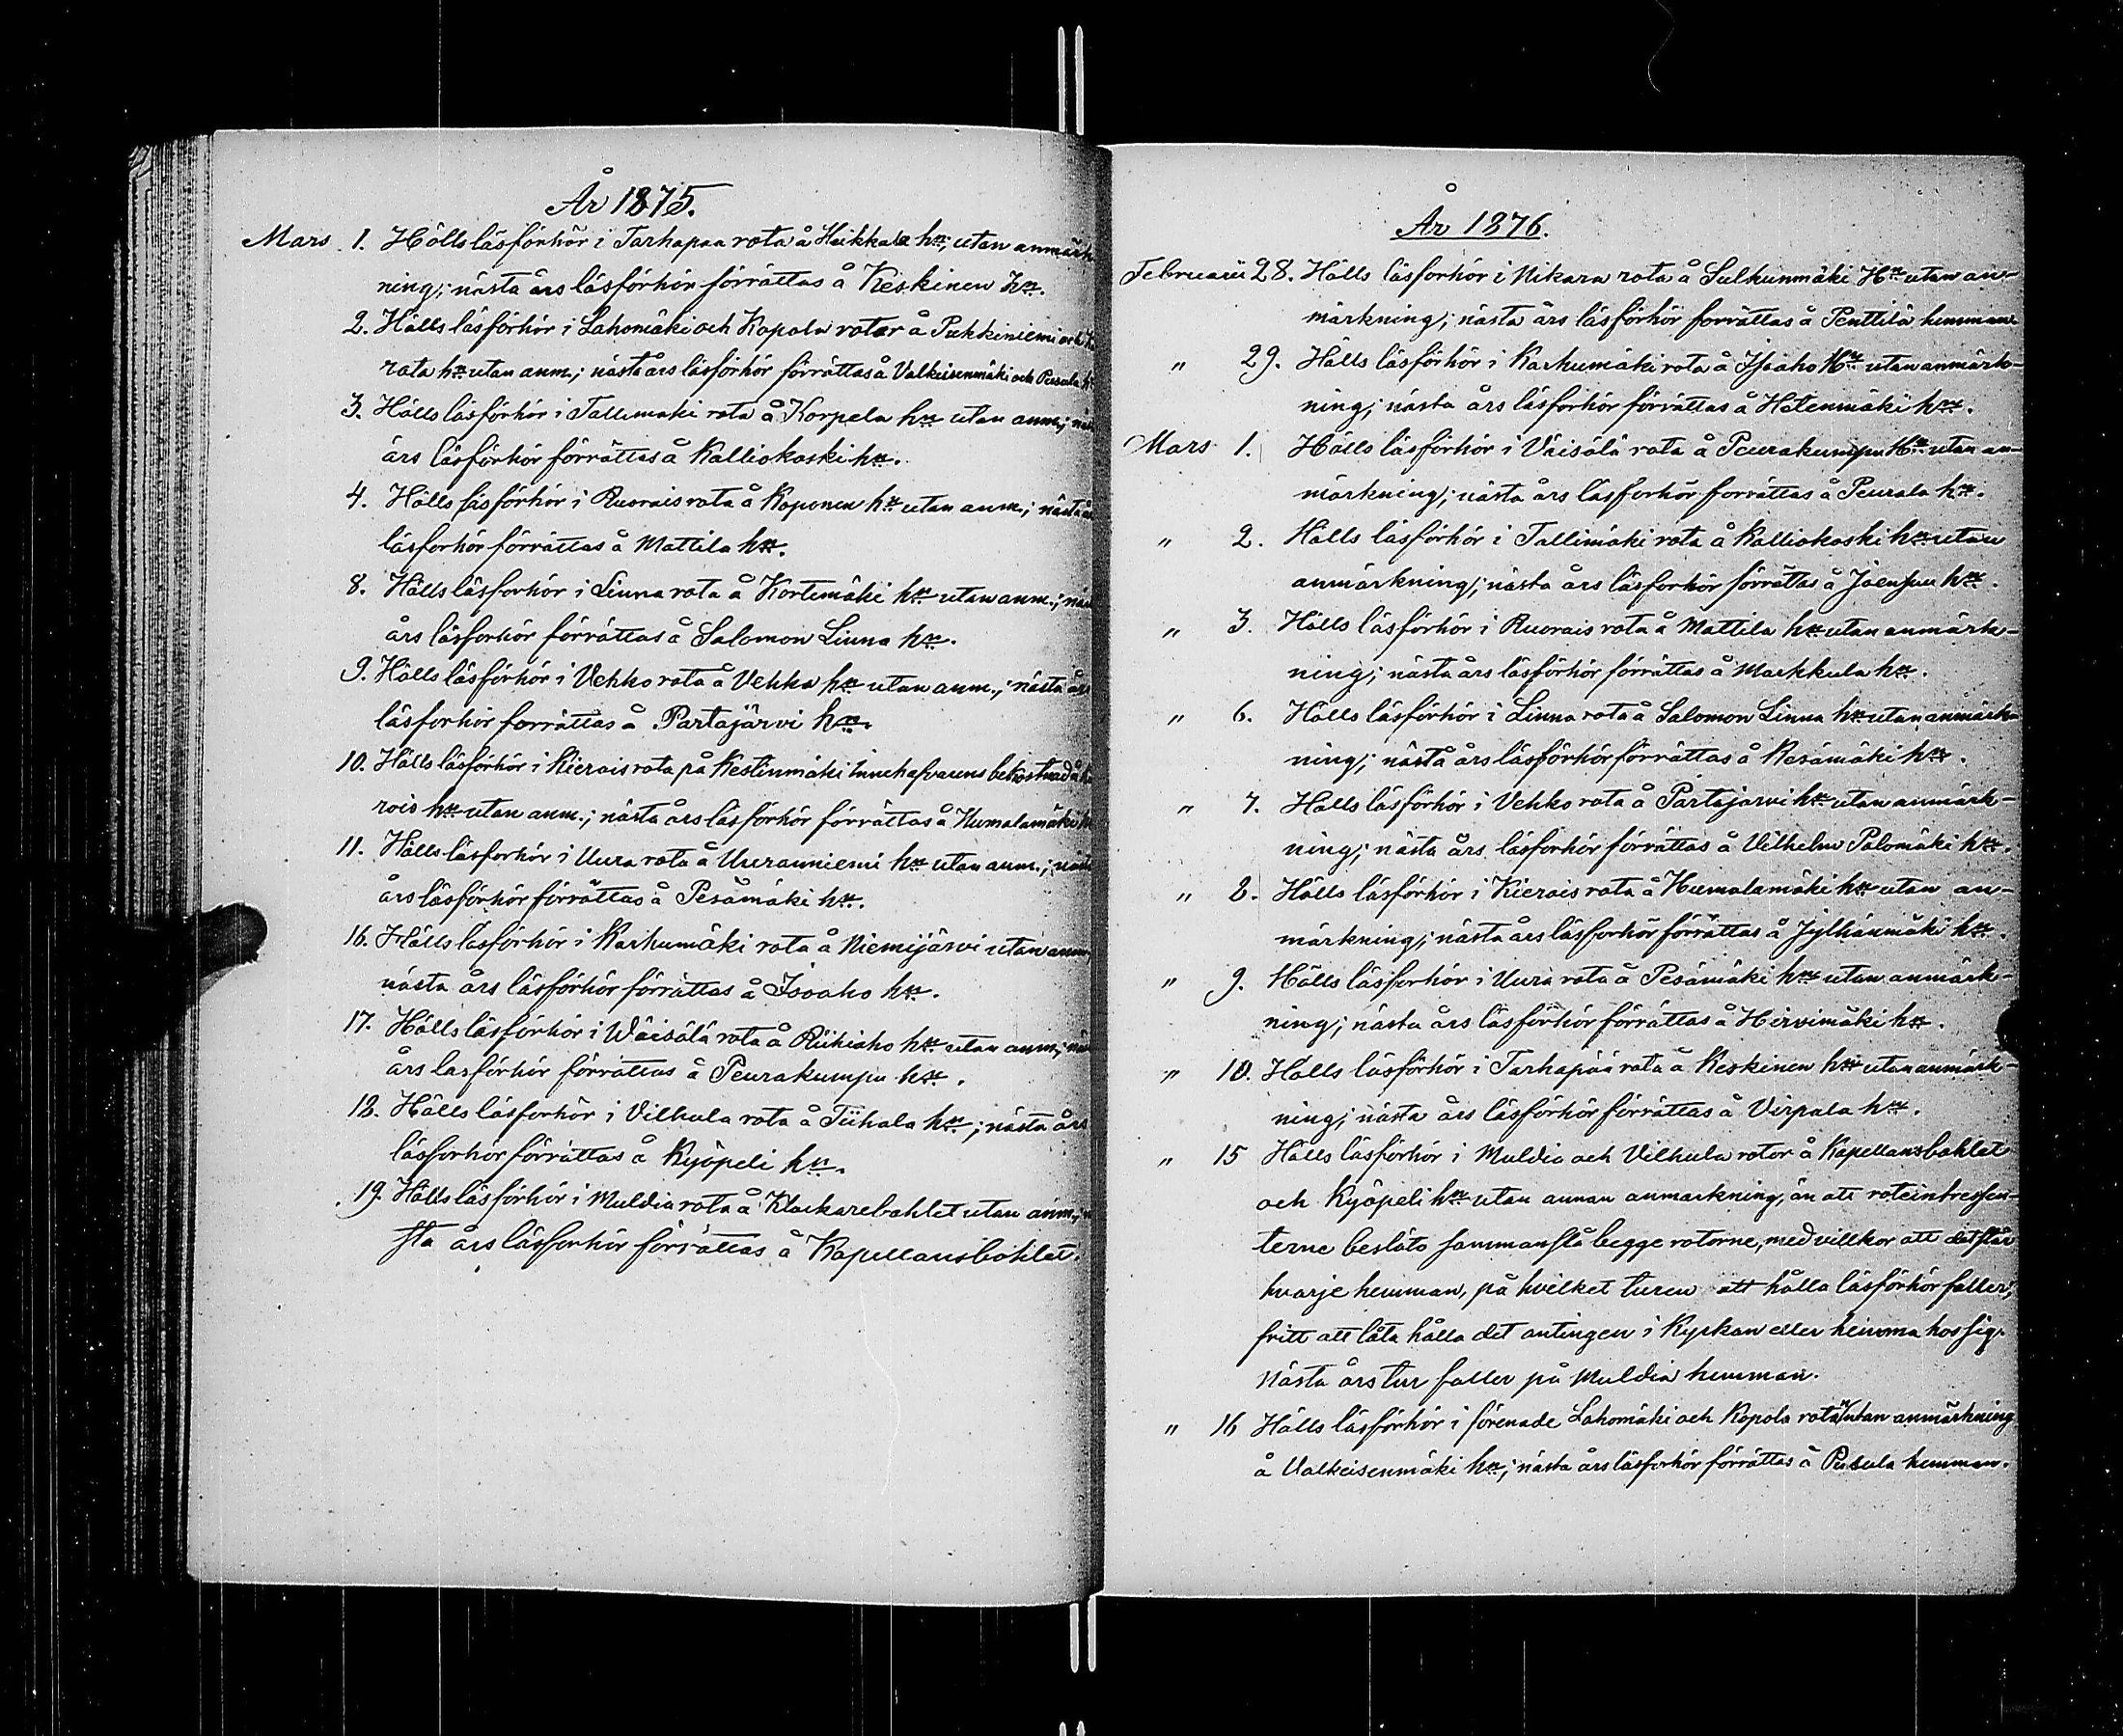 År 1875.
Mars 1. Hölls läsförhör i Tarhapaa rota å Heikkala hn; utan anmärk
ning; nästa års läsförhör förrättas å Keskinen hn.
2. Hölls läsförhör i Lahomäki och Kopola rotar å Pukkiniemi och
rata hn utan anm.; nästa års läsförhör förrättas å Valkeisenmäki och Pusula hn
3. Hölls läsförhör i Tallimäki rota å Korpela hn utan anm.;
års läsförhör förrättas å Kalliokoski hn.
4. Hölls läsförhör i Ruorais rota å Koponen hn utan anm.; nästa
läsförhör förrättas å Mattila hn.
8. Hölls läsförhör i Linna rota å Kortemäki hn utan anm.;
års läsförhör förrättas å Salomon Linna hn.
9. Hölls läsförhör i Vehko rota å Vehka hn utan anm.; nästa års
läsförhör förrättas å Partajärvi hn.
10. Hölls läsförhör i Kierois rota på Kestinmäki innehafvarens bekostnad å
rois hn utan anm.; nästa års läsförhör förrättas å Humalamäki
11. Hölls läsförhör i Uura rota å Uurauniemi hn utan anm.;
års läsförhör förrättas å Pesämäki hn.
16. Hölls läsförhör i Karhumäki rota å Niemijärvi utan anm;
nästa års läsförhör förrättas å Isoaho hn.
17. Hölls läsförhör i Wäisälä rota å Riihiaho hn utan anm.;
års läsförhör förrättas å Peurakumpu hn.
18. Hölls läsförhör i Vilhula rota å Tiihala hn; nästa års
läsförhör förrättas å Kyöpeli hn.
19. Hölls läsförhör i Muldia rota å Klockarebohlet utan anm.;
sta års läsförhör förrättas å Kapellansbohlet.
År 1876.
Februarii 28. Hölls läsförhör i Nikara rota å Sulkunmäki Hn utan an-
märkning; nästa års läsförhör förrättas å Penttilä hemman.
" 29. Hölls läsförhör i Karhumäki rota å Isoaho Hn utan anmärk-
ning; nästa års läsförhör förrättas å Hetenmäki hn.
Mars 1. Hölls läsförhör i Väisälä rota å Peurakumpu Hn utan an-
märkning; nästa års läsförhör förrättas å Peurala hn.
" 2. Hölls läsförhör i Tallimäki rota å Kalliokoski hn utan
anmärkning; nästa års läsförhör förrättas å Joensuu hn.
" 3. Hölls läsförhör i Ruorais rota å Mattila hn utan anmärk-
ning; nästa års läsförhör förrättas å Markkula hn.
" 6. Hölls läsförhör i Linna rota å Salomon Linna hn utan anmärk-
ning; nästa års läsförhör förrättas å Kesämäki hn.
" 7. Hölls läsförhör i Vehko rota å Partajärvi hn utan anmärk-
ning; nästa års läsförhör förrättas å Vilhelm Palomäki hn.
" 8. Hölls läsförhör i Kierois rota å Humalamäki hn utan an-
märkning; nästa års läsförhör förrättas å Jylhänmäki hn.
" 9. Hölls läsförhör i Uura rota å Pesämäki hn utan anmärk-
ning; nästa års läsförhör förrättas å Hirvimäki hn.
" 10. Hölls läsförhör i Tarhapää rota å Keskinen hn utan anmärk-
ning; nästa års läsförhör förrättas å Virpala hn.
" 15 Hölls läsförhör i Muldia och Vilhula rotor å Kapellansbohlet
och Kyöpeli hn utan annan anmärkning, än att roteintressen-
terne beslöto sammanslå begge rotorne, med villkor att det står
hvarje hemman, på hvilket turen att hålla läsförhör faller,
fritt att låta hålla det antingen i Kyrkan eller hemma hos sig.
Nästa års tur faller på Muldia hemman.
" 16 Hölls läsförhör i förenade Lahomäki och Kopola rota utan anmärkning
å Valkeisenmäki hn; nästa års läsförhör förrättas å Pusula hemman.